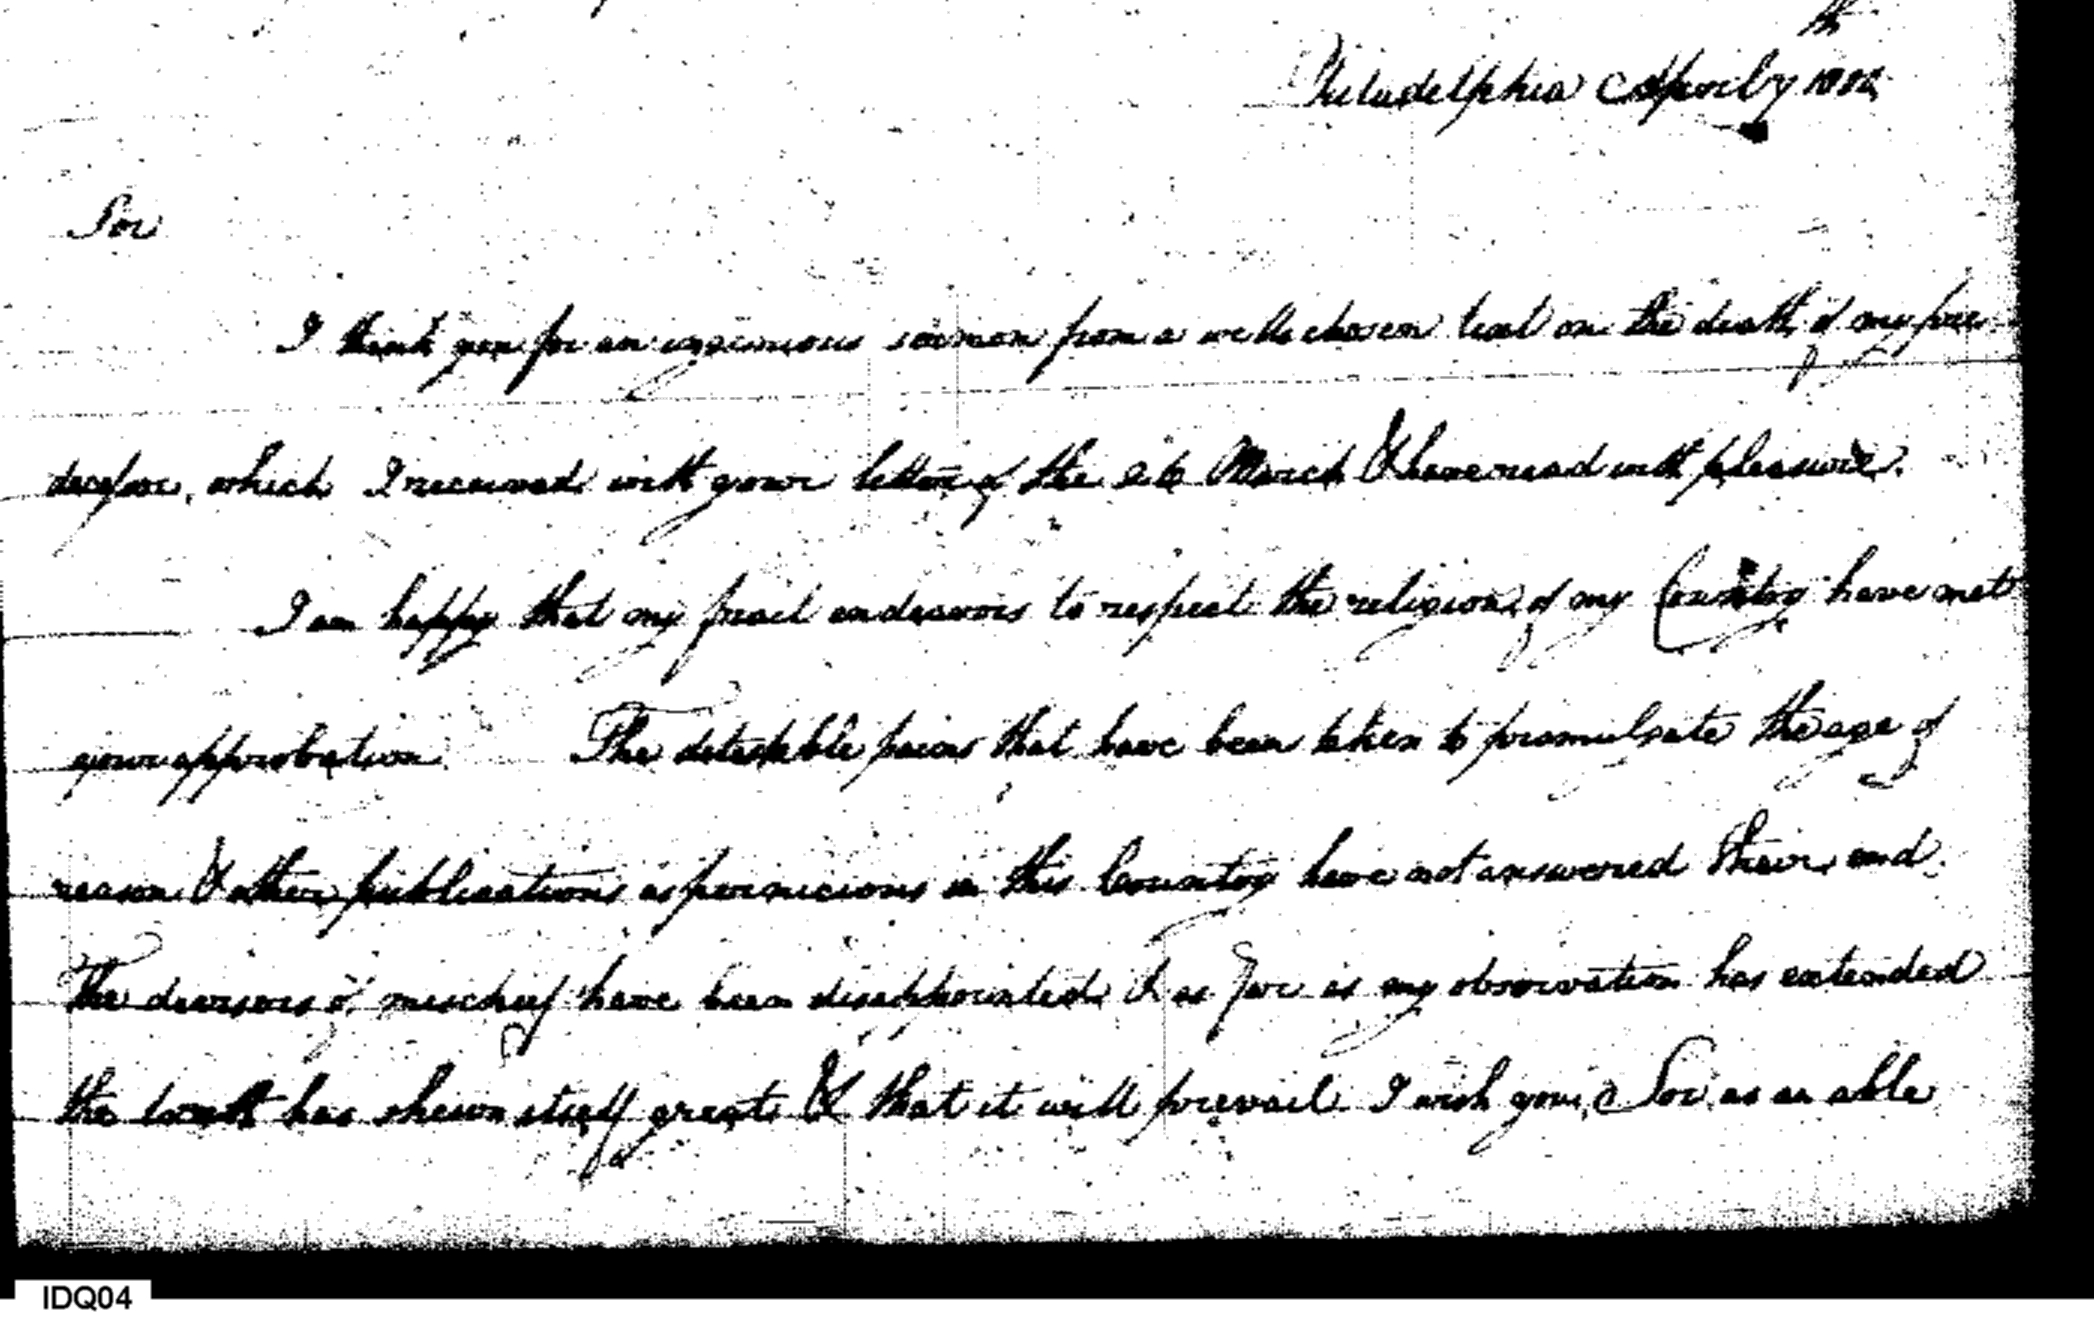 Philadelphia April 7th 1800
Sir
I thank you for an ingenious sermon from a well chosen text on the death of my pre
decessor, which I received with your letter of the 26 March & have read with pleasure.
I am happy that my frail endeavors to respect the religion of my Country have met
your approbation. The detestable pains that have been taken to promulgate the age of
reason & other publications as pernicious in this Country have not answered their end.
The devisors of mischief have been disappointed & as far as my observation has extended
the truth has shewn itself great & that it will prevail. I wish you, Sir, as an able
IDQ04